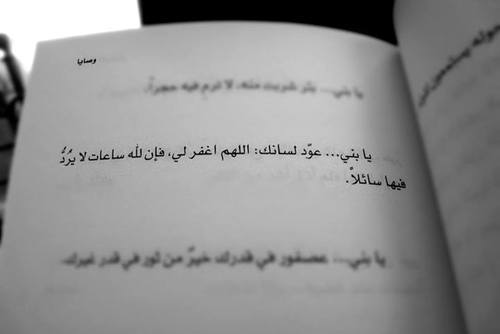 وصايا
يا بني... بئر شربت منه، لا ترمِ فيه حجراً.
يا بني... عوّد لسانك: اللهم اغفر لي، فإن لله ساعات لا يردُّ
فيها سائلاً.
يا بني... عصفور في قدرك خيرٌ من ثور في قدر غيرك.